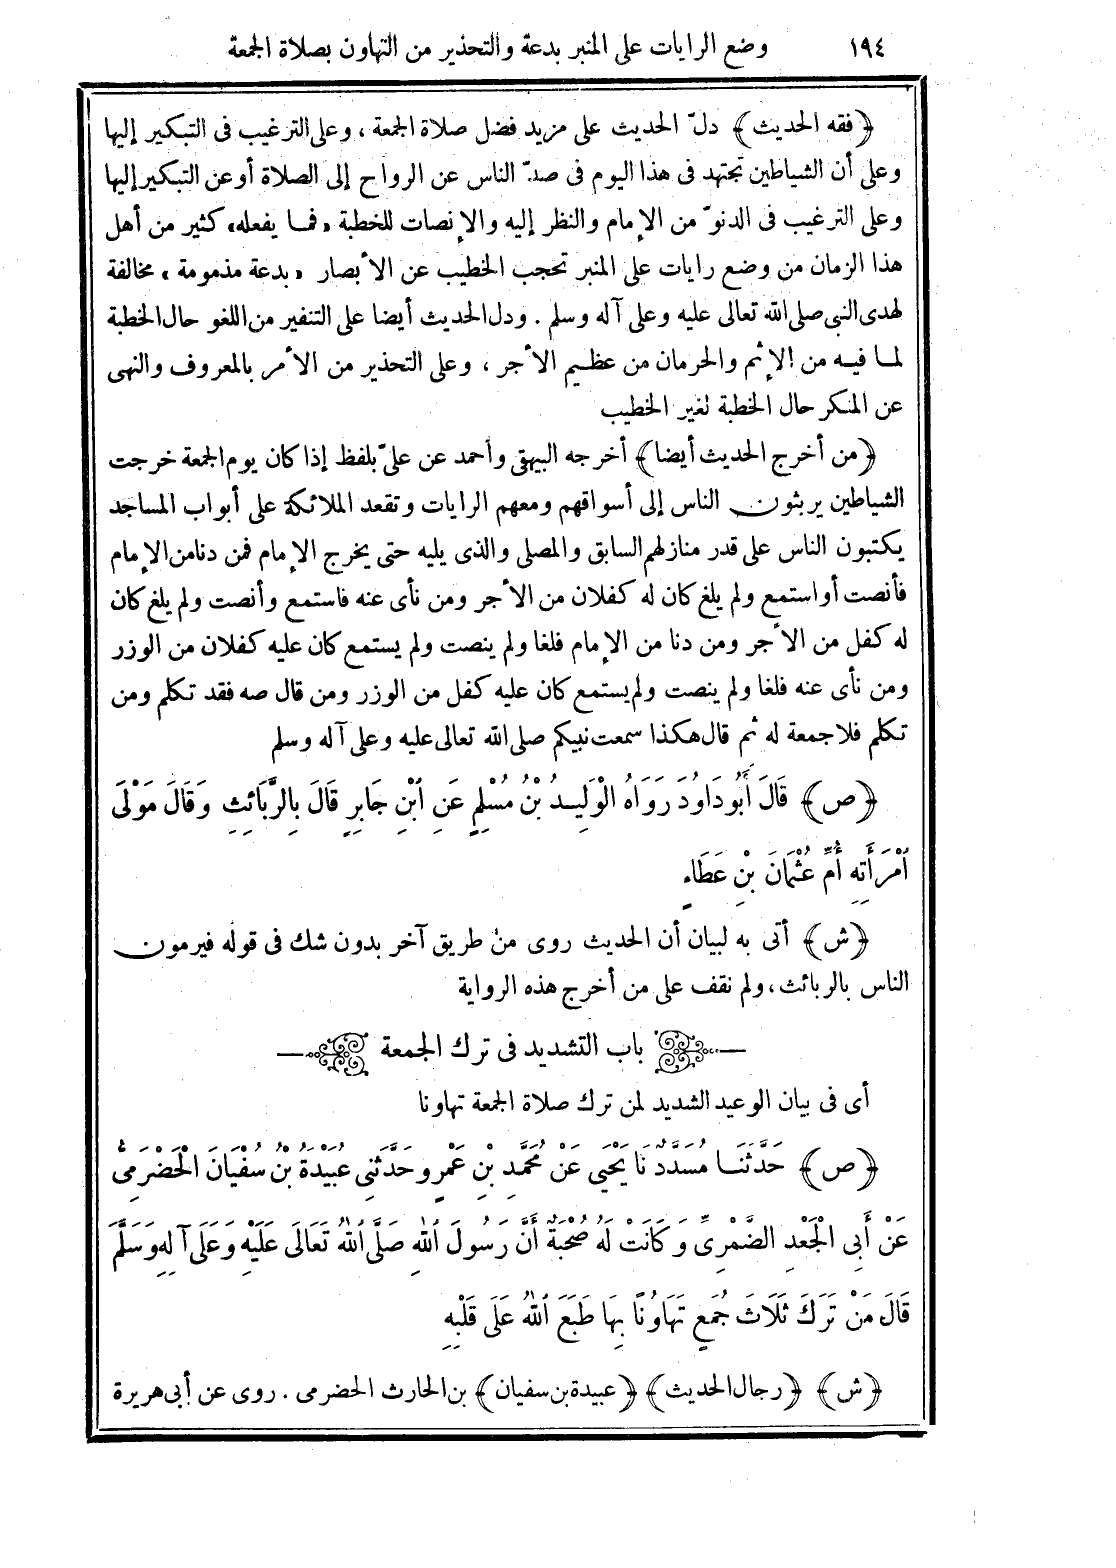 ١٩٤ وضع الرايات على المنبر بدعة والتحذير من التهاون بصلاة الجمعة
﴿فقه الحديث﴾ دلّ الحديث على مزيد فضل صلاة الجمعة ، وعلى الترغيب فى التبكير إليها
وعلى أن الشياطين تجتهد فى هذا اليوم فى صدّ الناس عن الرواح إلى الصلاة أو عن التبكير إليها
وعلى الترغيب فى الدنوّ من الإمام والنظر إليه والإنصات للخطبة «فما يفعله» كثير من أهل
هذا الزمان من وضع رايات على المنبر تحجب الخطيب عن الأبصار «بدعة مذمومة» مخالفة
لهدى النبى صلى الله تعالى عليه وعلى آله وسلم . ودل الحديث أيضا على التنفير من اللغو حال الخطبة
لما فيه من الإثم والحرمان من عظيم الأجر ، وعلى التحذير من الأمر بالمعروف والنهى
عن المنكر حال الخطبة لغير الخطيب
﴿من أخرج الحديث أيضا﴾ أخرجه البيهقى وأحمد عن علىّ بلفظ إذا كان يوم الجمعة خرجت
الشياطين يربثون الناس إلى أسواقهم ومعهم الرايات وتقعد الملائكة على أبواب المساجد
يكتبون الناس على قدر منازلهم السابق والمصلى والذى يليه حتى يخرج الإمام فمن دنا من الإمام
فأنصت أو استمع ولم يلغ كان له كفلان من الأجر ومن نأى عنه فاستمع وأنصت ولم يلغ كان
له كفل من الأجر ومن دنا من الإمام فلغا ولم ينصت ولم يستمع كان عليه كفلان من الوزر
ومن نأى عنه فلغا ولم ينصت ولم يستمع كان عليه كفل من الوزر ومن قال صه فقد تكلم ومن
تكلم فلا جمعة له ثم قال هكذا سمعت نبيكم صلى الله تعالى عليه وعلى آله وسلم
﴿ص﴾ قَالَ أَبُو دَاوُدَ رَوَاهُ الْوَلِيدُ بْنُ مُسْلِمٍ عَنِ ابْنِ جَابِرٍ قَالَ بِالرَّبَائِثِ وَقَالَ مَوْلَى
امْرَأَتِهِ أُمِّ عُثْمَانَ بْنِ عَطَاءٍ
﴿ش﴾ أتى به لبيان أن الحديث روى من طريق آخر بدون شك فى قوله فيرمون
الناس بالربائث ، ولم نقف على من أخرج هذه الرواية
باب التشديد فى ترك الجمعة
أى فى بيان الوعيد الشديد لمن ترك صلاة الجمعة تهاونا
﴿ص﴾ حَدَّثَنَا مُسَدَّدٌ نَا يَحْيَى عَنْ مُحَمَّدِ بْنِ عَمْرٍو حَدَّثَنِى عَبِيدَةُ بْنُ سُفْيَانَ الْحَضْرَمِىُّ
عَنْ أَبِى الْجَعْدِ الضَّمْرِىِّ وَكَانَتْ لَهُ صُحْبَةٌ أَنَّ رَسُولَ اللهِ صَلَّى اللهُ تَعَالَى عَلَيْهِ وَعَلَى آلِهِ وَسَلَّمَ
قَالَ مَنْ تَرَكَ ثَلَاثَ جُمَعٍ تَهَاوُنًا بِهَا طَبَعَ اللهُ عَلَى قَلْبِهِ
﴿ش﴾ ﴿رجال الحديث﴾ ﴿عبيدة بن سفيان﴾ بن الحارث الحضرمى . روى عن أبى هريرة